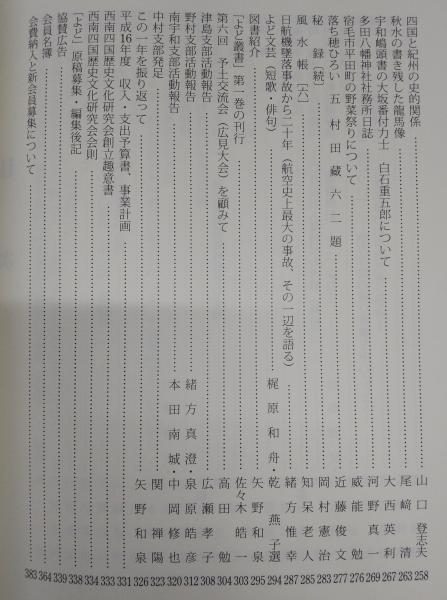 四国と紀州の史的関係 山口登志夫 258
秋水の書き残した龍馬像 尾﨑清 263
宇和嶋頭書の大坂番付力士 白石重五郎について 大西英利 267
多田八幡神社社務所日誌 河野真一 269
宿毛市平田町の野菜祭りについて 威能勉 276
落ち穂ひろい 五 村田蔵六二題 近藤俊文 277
秘録〔続〕 岡村憲治 283
風水帳〔六〕 知呆老人 285
日航機墜落事故から二十年(航空史上最大の事故、その一辺を語る) 緒方惟幸 287
よど文芸(短歌・俳句) 梶原和舟・乾燕子選 294
図書紹介 矢野和泉 295
『よど叢書』第一巻の刊行 佐々木皓一 303
第六回 予土交流会(広見大会)を顧みて 高田勉 304
津島支部活動報告 広瀬孝子 308
野村支部活動報告 緒方真澄・泉原皓彦 312
南宇和支部活動報告 本田南城・中岡修也 320
中村支部発足 関禅陽 323
この一年を振り返って 矢野和泉 326
平成16年度 収入・支出予算書、事業計画 331
西南四国歴史文化研究会創立趣意書 333
西南四国歴史文化研究会会則 334
『よど』原稿募集・編集後記 338
協賛広告 339
会員名簿 364
会費納入と新会員募集について 383